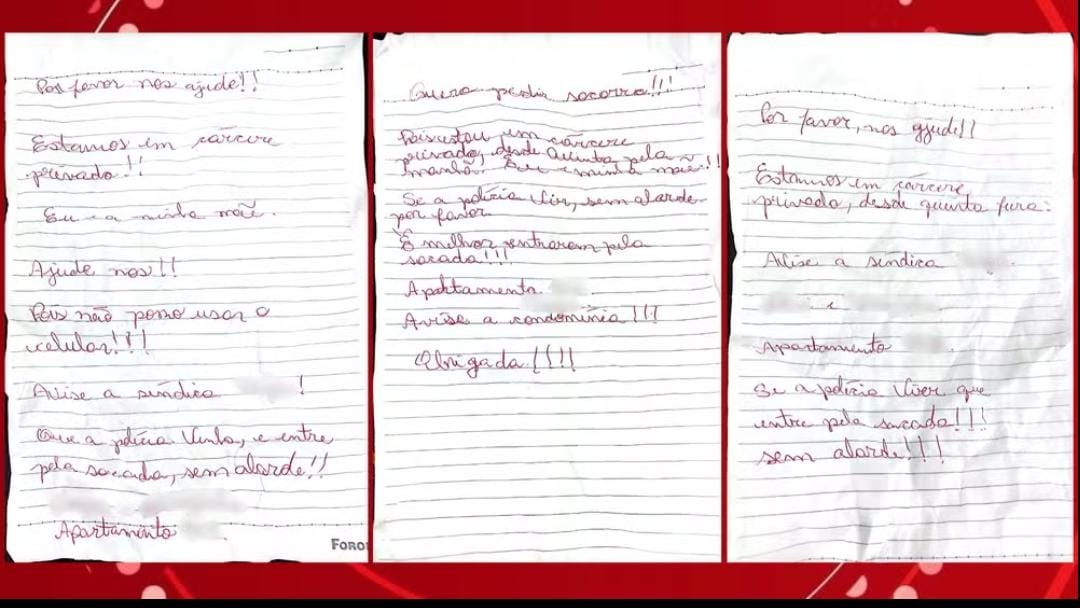 Por favor nos ajude!!
Estamos em cárcere
privado!!
Eu e a minha mãe.
Ajude nos!!
Pois não posso usar o
celular!!!
Avise a síndica !
Que a polícia Venha, e entre
pela sacada, sem alarde!!
Apartamento
FORON
Quero pedir socorro!!!
Pois estou em cárcere
privado, desde Quinta pela
manhã. Eu e minha mãe!!
Se a polícia Vir, sem alarde
por favor
É melhor entrarem pela
sacada!!!
Apartamento
Avise a condomínia!!!
Obrigada!!!!
Por favor, nos ajude!!
Estamos em cárcere
privado, desde quinta feira.
Avise a síndica
e
Apartamento
Se a polícia Vier que
entre pela sacada!!!
sem alarde!!!